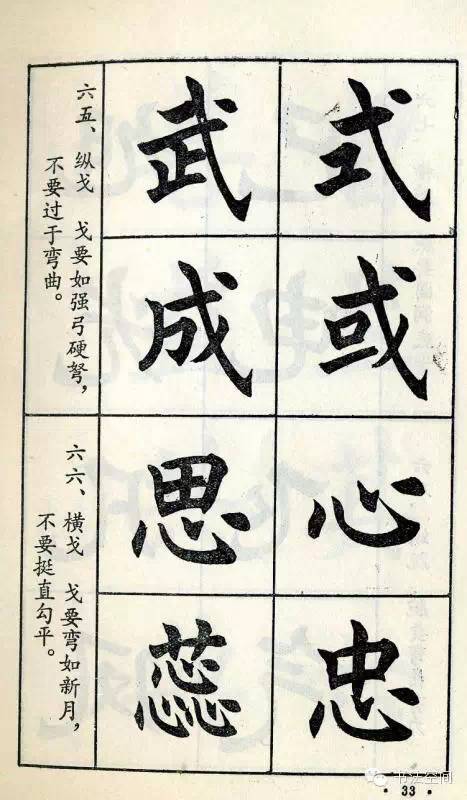 式
或
心
忠
武
成
思
蕊
六五、纵戈 戈要如强弓硬弩，
不要过于弯曲。
六六、横戈 戈要弯如新月，
不要挺直勾平。
·33·
书法空间